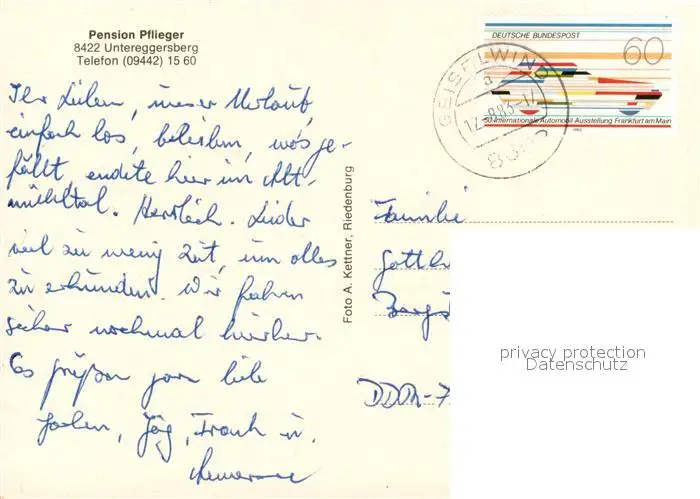 Pension Pflieger
8422 Untereggersberg
Telefon (09442) 15 60
DEUTSCHE BUNDESPOST
60
50. Internationale Automobil-Ausstellung Frankfurt am Main
1983
GEISELWIN
a
12.-9.83-17
Ihr Lieben, unser Urlaub,
einfach los, bleiben, wo's ge-
fällt, endete hier im Alt-
mühltal. Herrlich. Leider
viel zu wenig Zeit, um alles
zu erkunden. Wir fahren
sicher nochmal hierher.
Es grüßen ganz liebe
Jochen, Jörg, Frank u.
Foto A. Kettner, Riedenburg
Familie
Gotth
DDR-7
privacy protection
Datenschutz